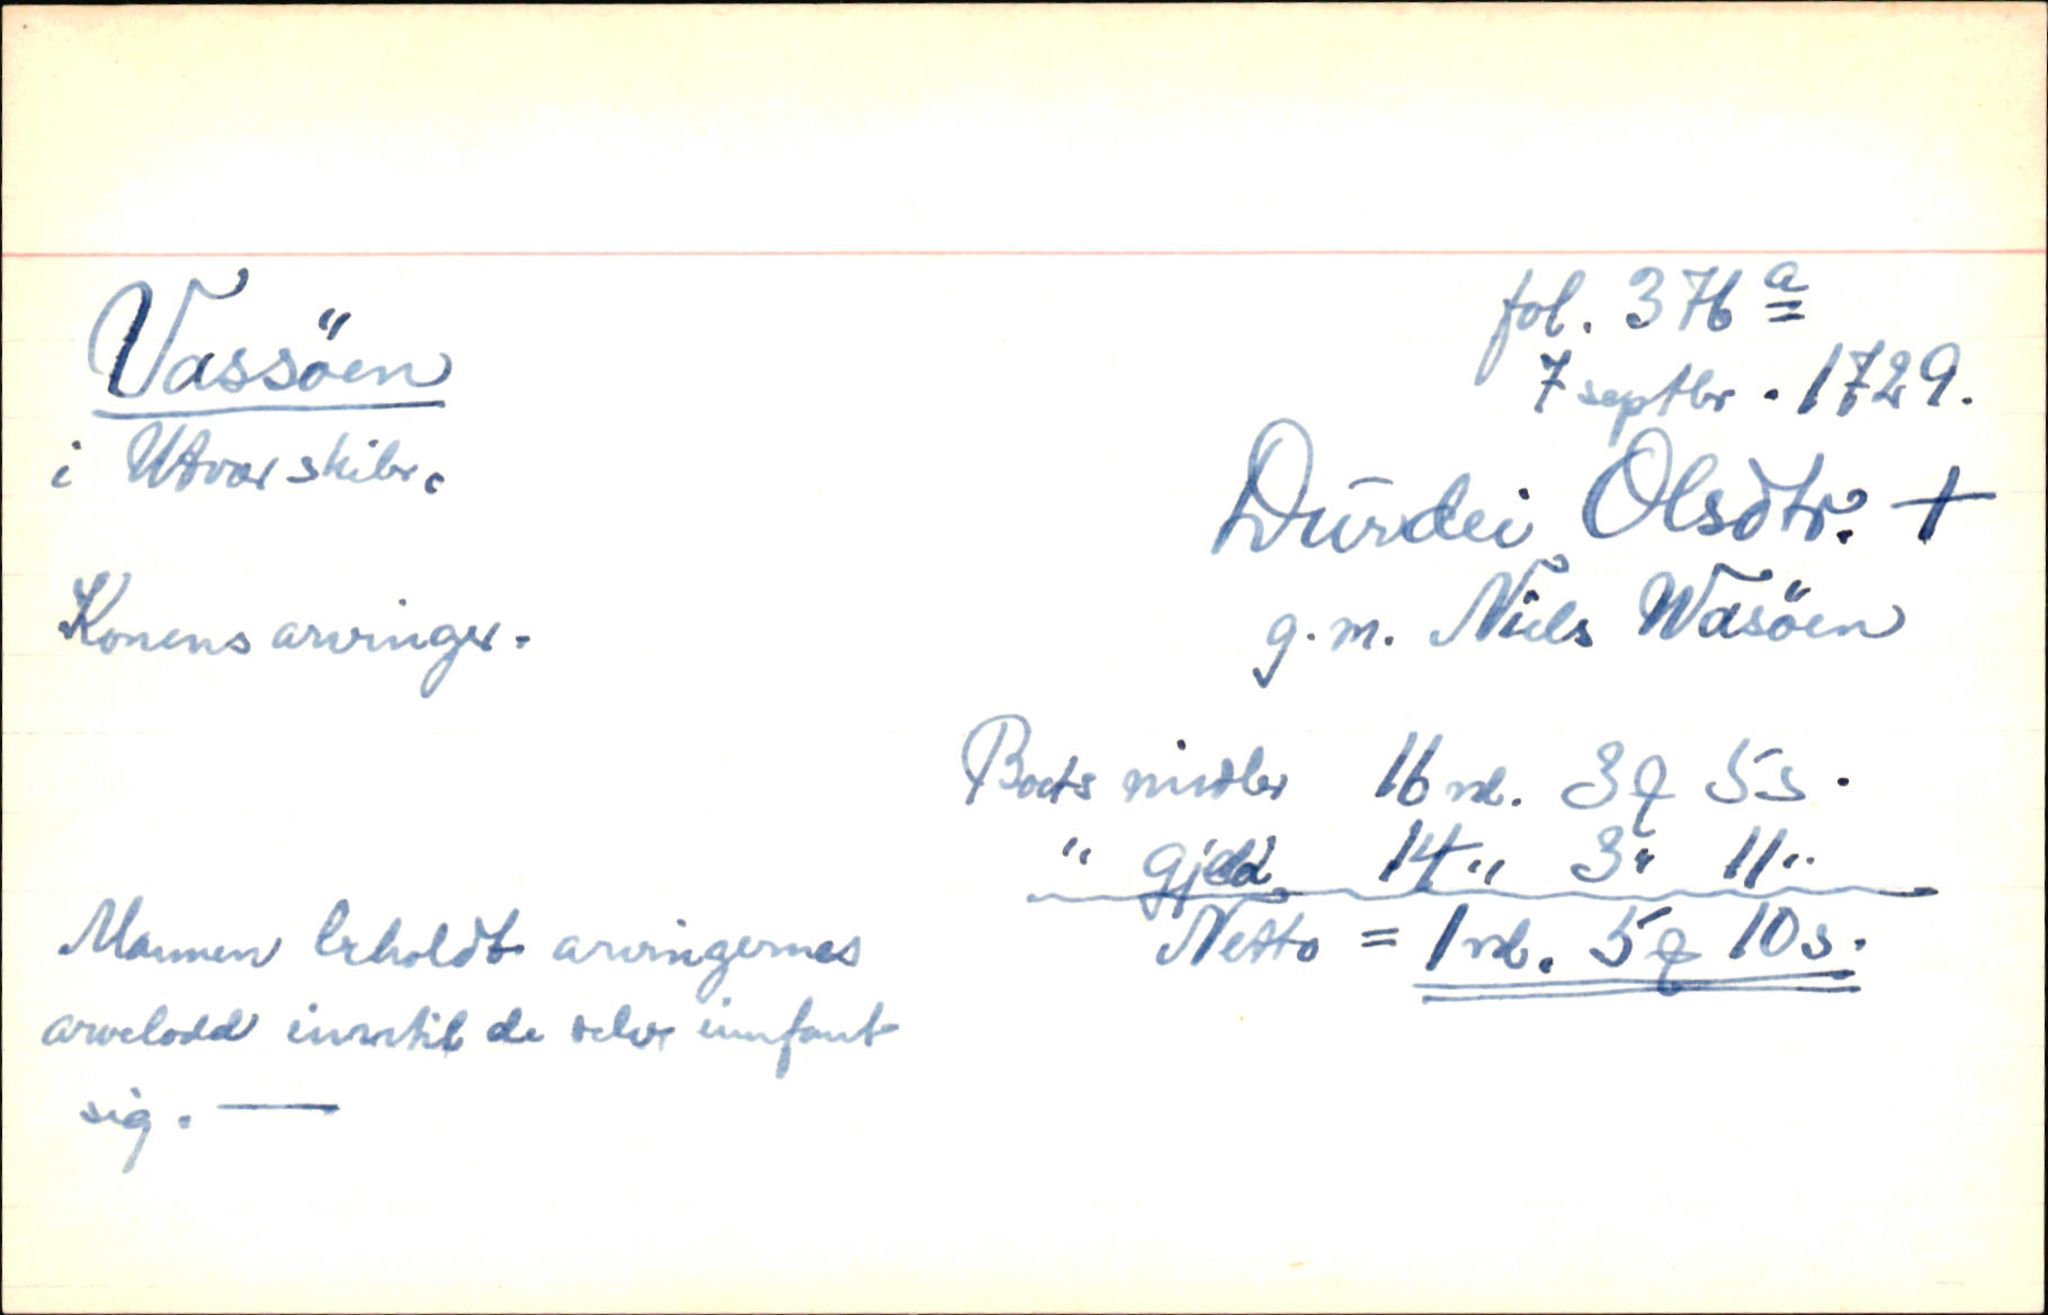 Vassöen
i Utvær skibr.
Konens arvinger.
Mannen beholdt arvingernes
arvelodd inntil de selv innfant
sig. —
fol. 376 a
7 septbr. 1729.
Durdei Olsdtr. +
g.m. Niels Wasöen
Boets midler 16 rd. 3 q 5 s.
" gjeld 14 " 3 " 11 "
Netto = 1 rd. 5 q 10 s.